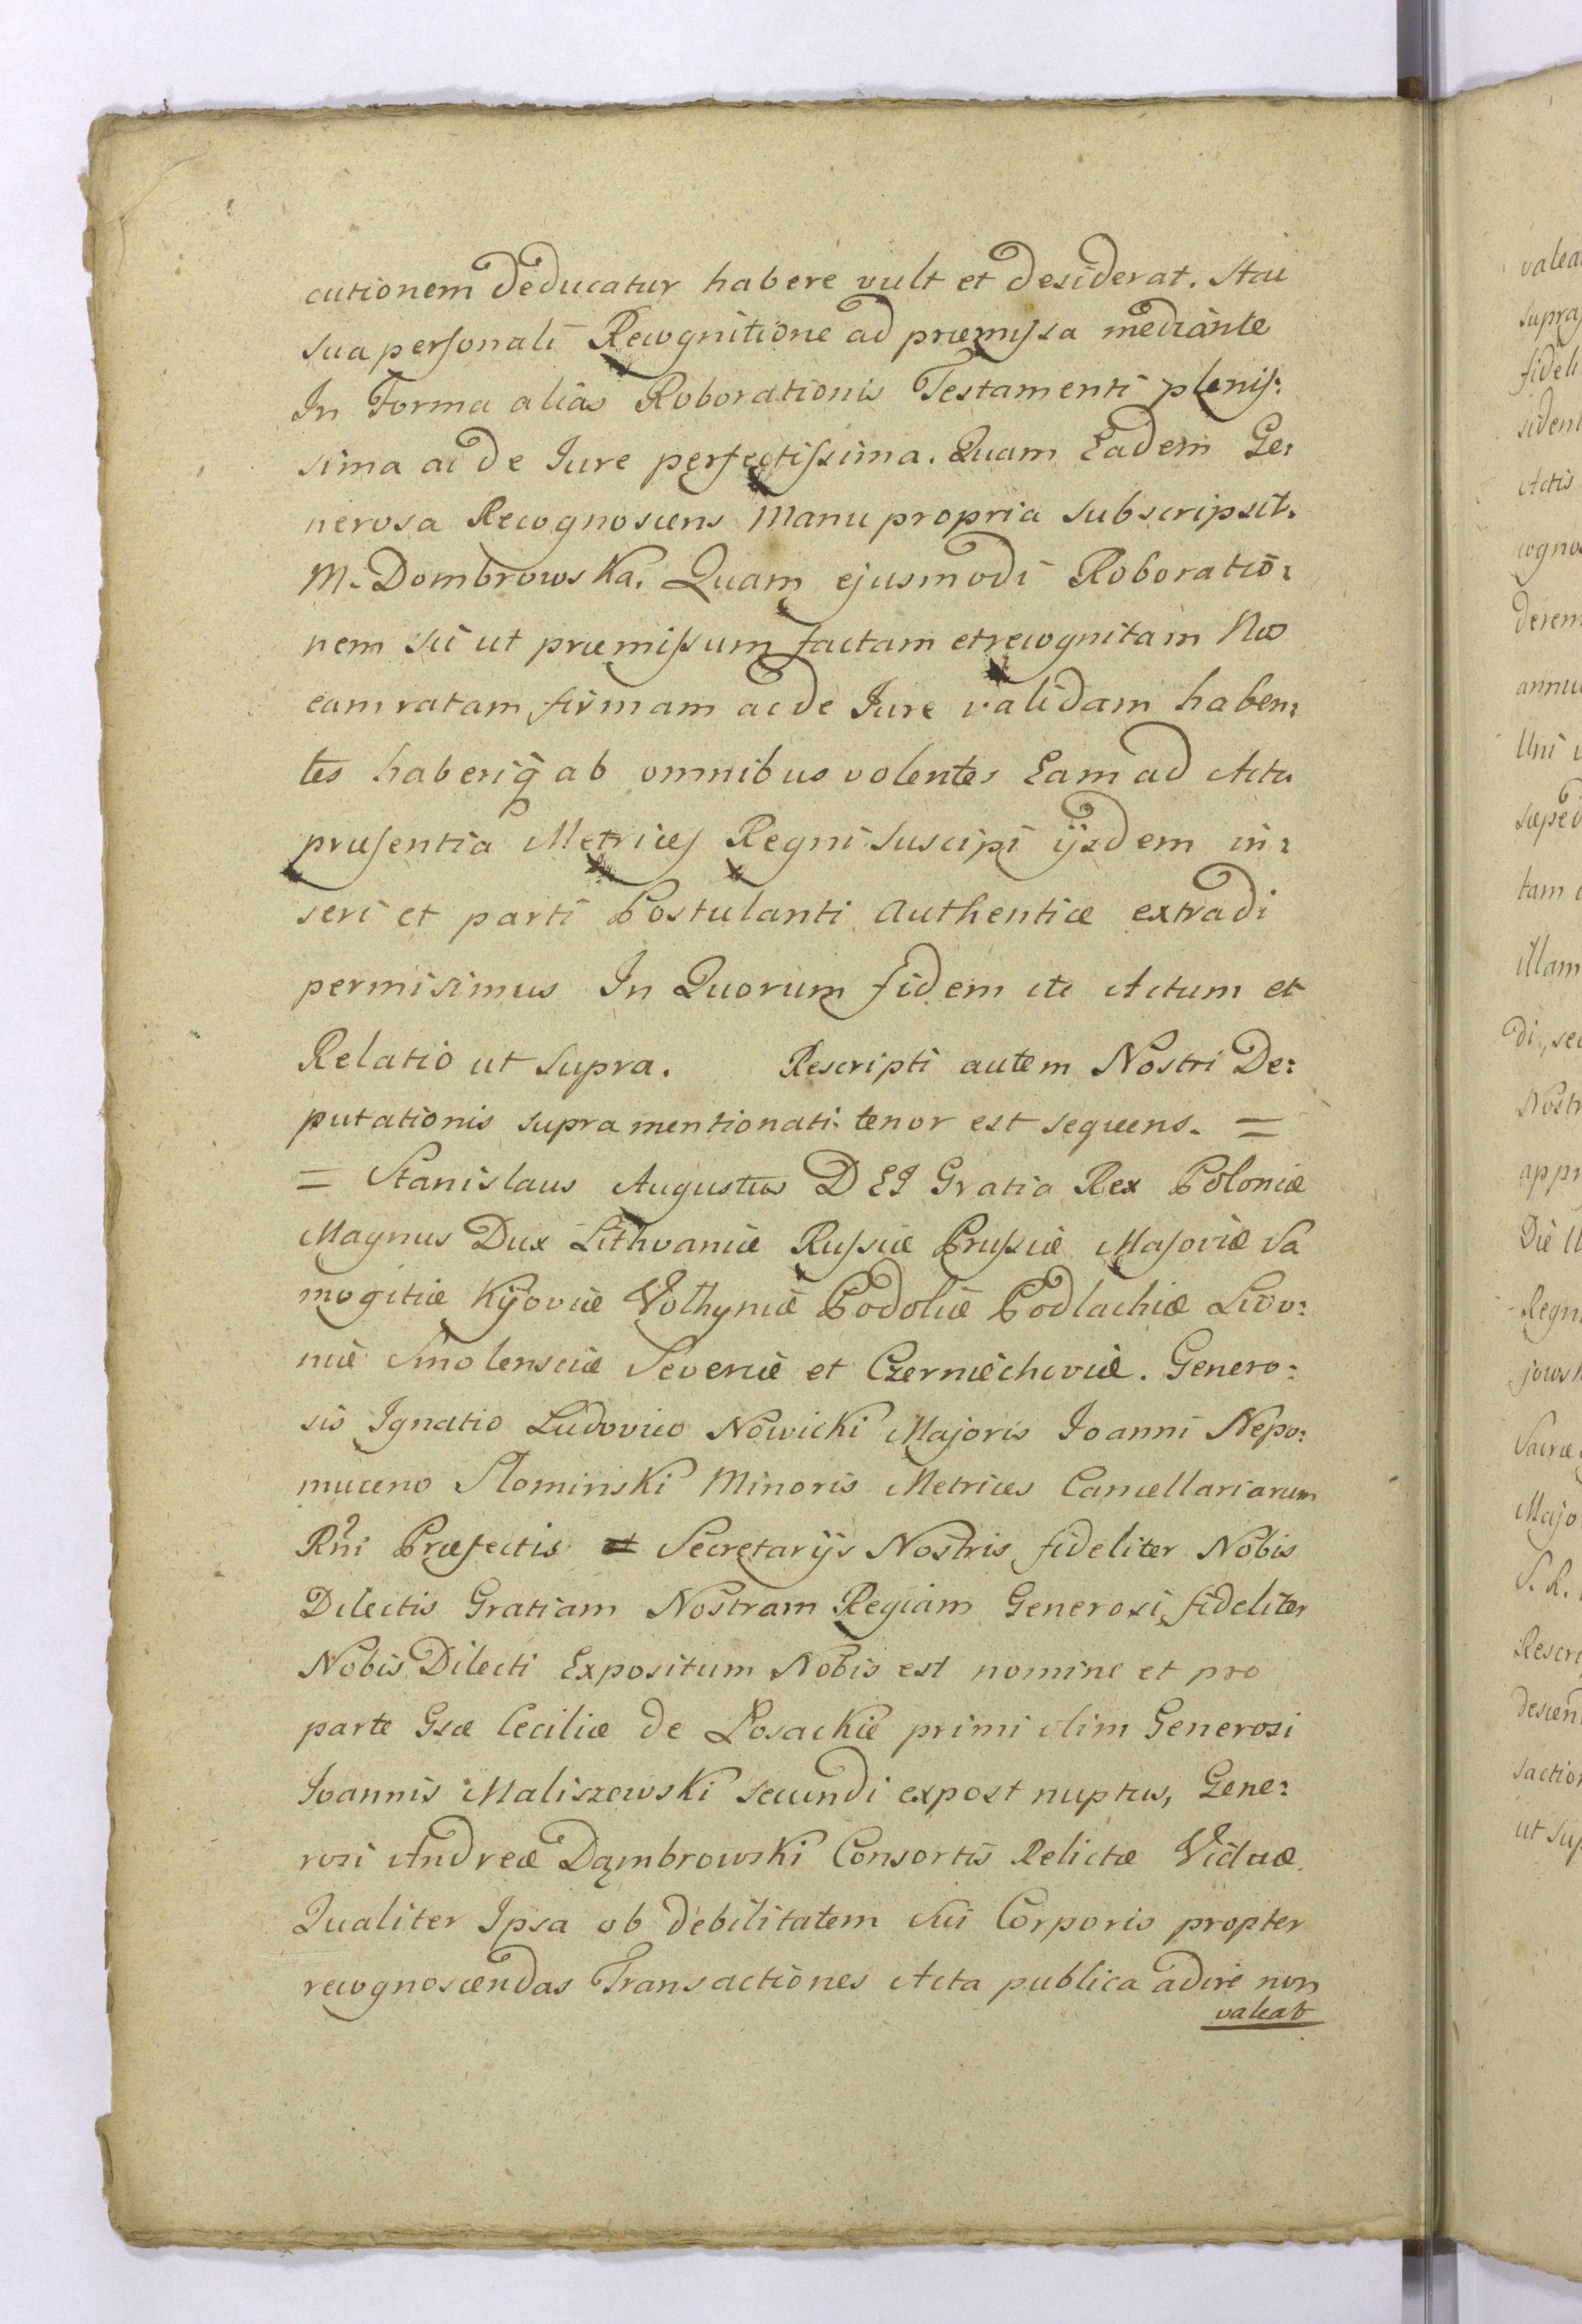 cutionem deducatur habere vult et desiderat. Hac
sua personali Recognitione ad præmissa mediante
In Forma alias Roborationis Testamenti plenis:
sima ac de Jure perfectissima. Quam Eadem Ge:
nerosa Recognoscens Manu propria subscripsit.
M. Dombrowska. Quam ejusmodi Roboratio:
nem sic ut præmissum factam et recognitam Nos
eam ratam, firmam ac de Jure validam haben:
tes haberiq̃ ab omnibus volentes Eam ad Acta
præsentia Metrices Regni Suscipi ijsdem in:
seri et parti Postulanti Authenticæ extradi
permisimus In Quorum fidem etc Actum et
Relatio ut supra. Rescripti autem Nostri De:
putationis supra mentionati tenor est sequens. =
= Stanislaus Augustus DEI Gratia Rex Poloniæ
Magnus Dux Lithvaniæ Russiæ Prussiæ Masoviæ Sa
mogitiæ Kijoviæ Volhyniæ Podoliæ Podlachiæ Livo:
niæ Smolensciæ Severiæ et Czerniechoviæ. Genero:
sis Ignatio Ludovico Nowicki Majoris Joanni Nepo:
muceno Slominski Minoris Metrices Cancellariarum
Rni Præfectis et Secretarijs Nostris fideliter Nobis
Dilectis Gratiam Nostram Regiam Generosi, fideliter
Nobis Dilecti Expositum Nobis est nomine et pro
parte Gsæ Ceciliæ de Losackie primi olim Generosi
Joannis Maliszewski secundi expost nuptus, Gene:
rosi Andreæ Dąmbrowski Consortis Relictæ Viduæ
Qualiter Ipsa ob debilitatem Sui Corporis propter
recognoscendas Transactiones Acta publica adire non
valeat